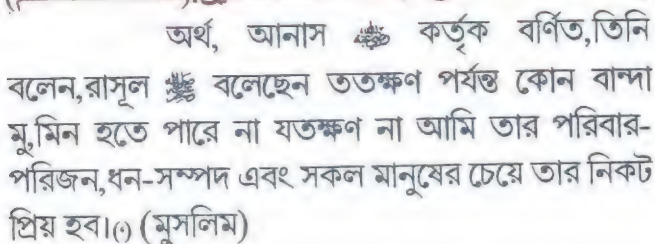 অর্থ, আনাস ﷺ কর্তৃক বর্ণিত,তিনি
বলেন,রাসূল ﷺ বলেছেন ততক্ষণ পর্যন্ত কোন বান্দা
মু,মিন হতে পারে না যতক্ষণ না আমি তার পরিবার-
পরিজন,ধন-সম্পদ এবং সকল মানুষের চেয়ে তার নিকট
প্রিয় হব।(০) (মুসলিম)